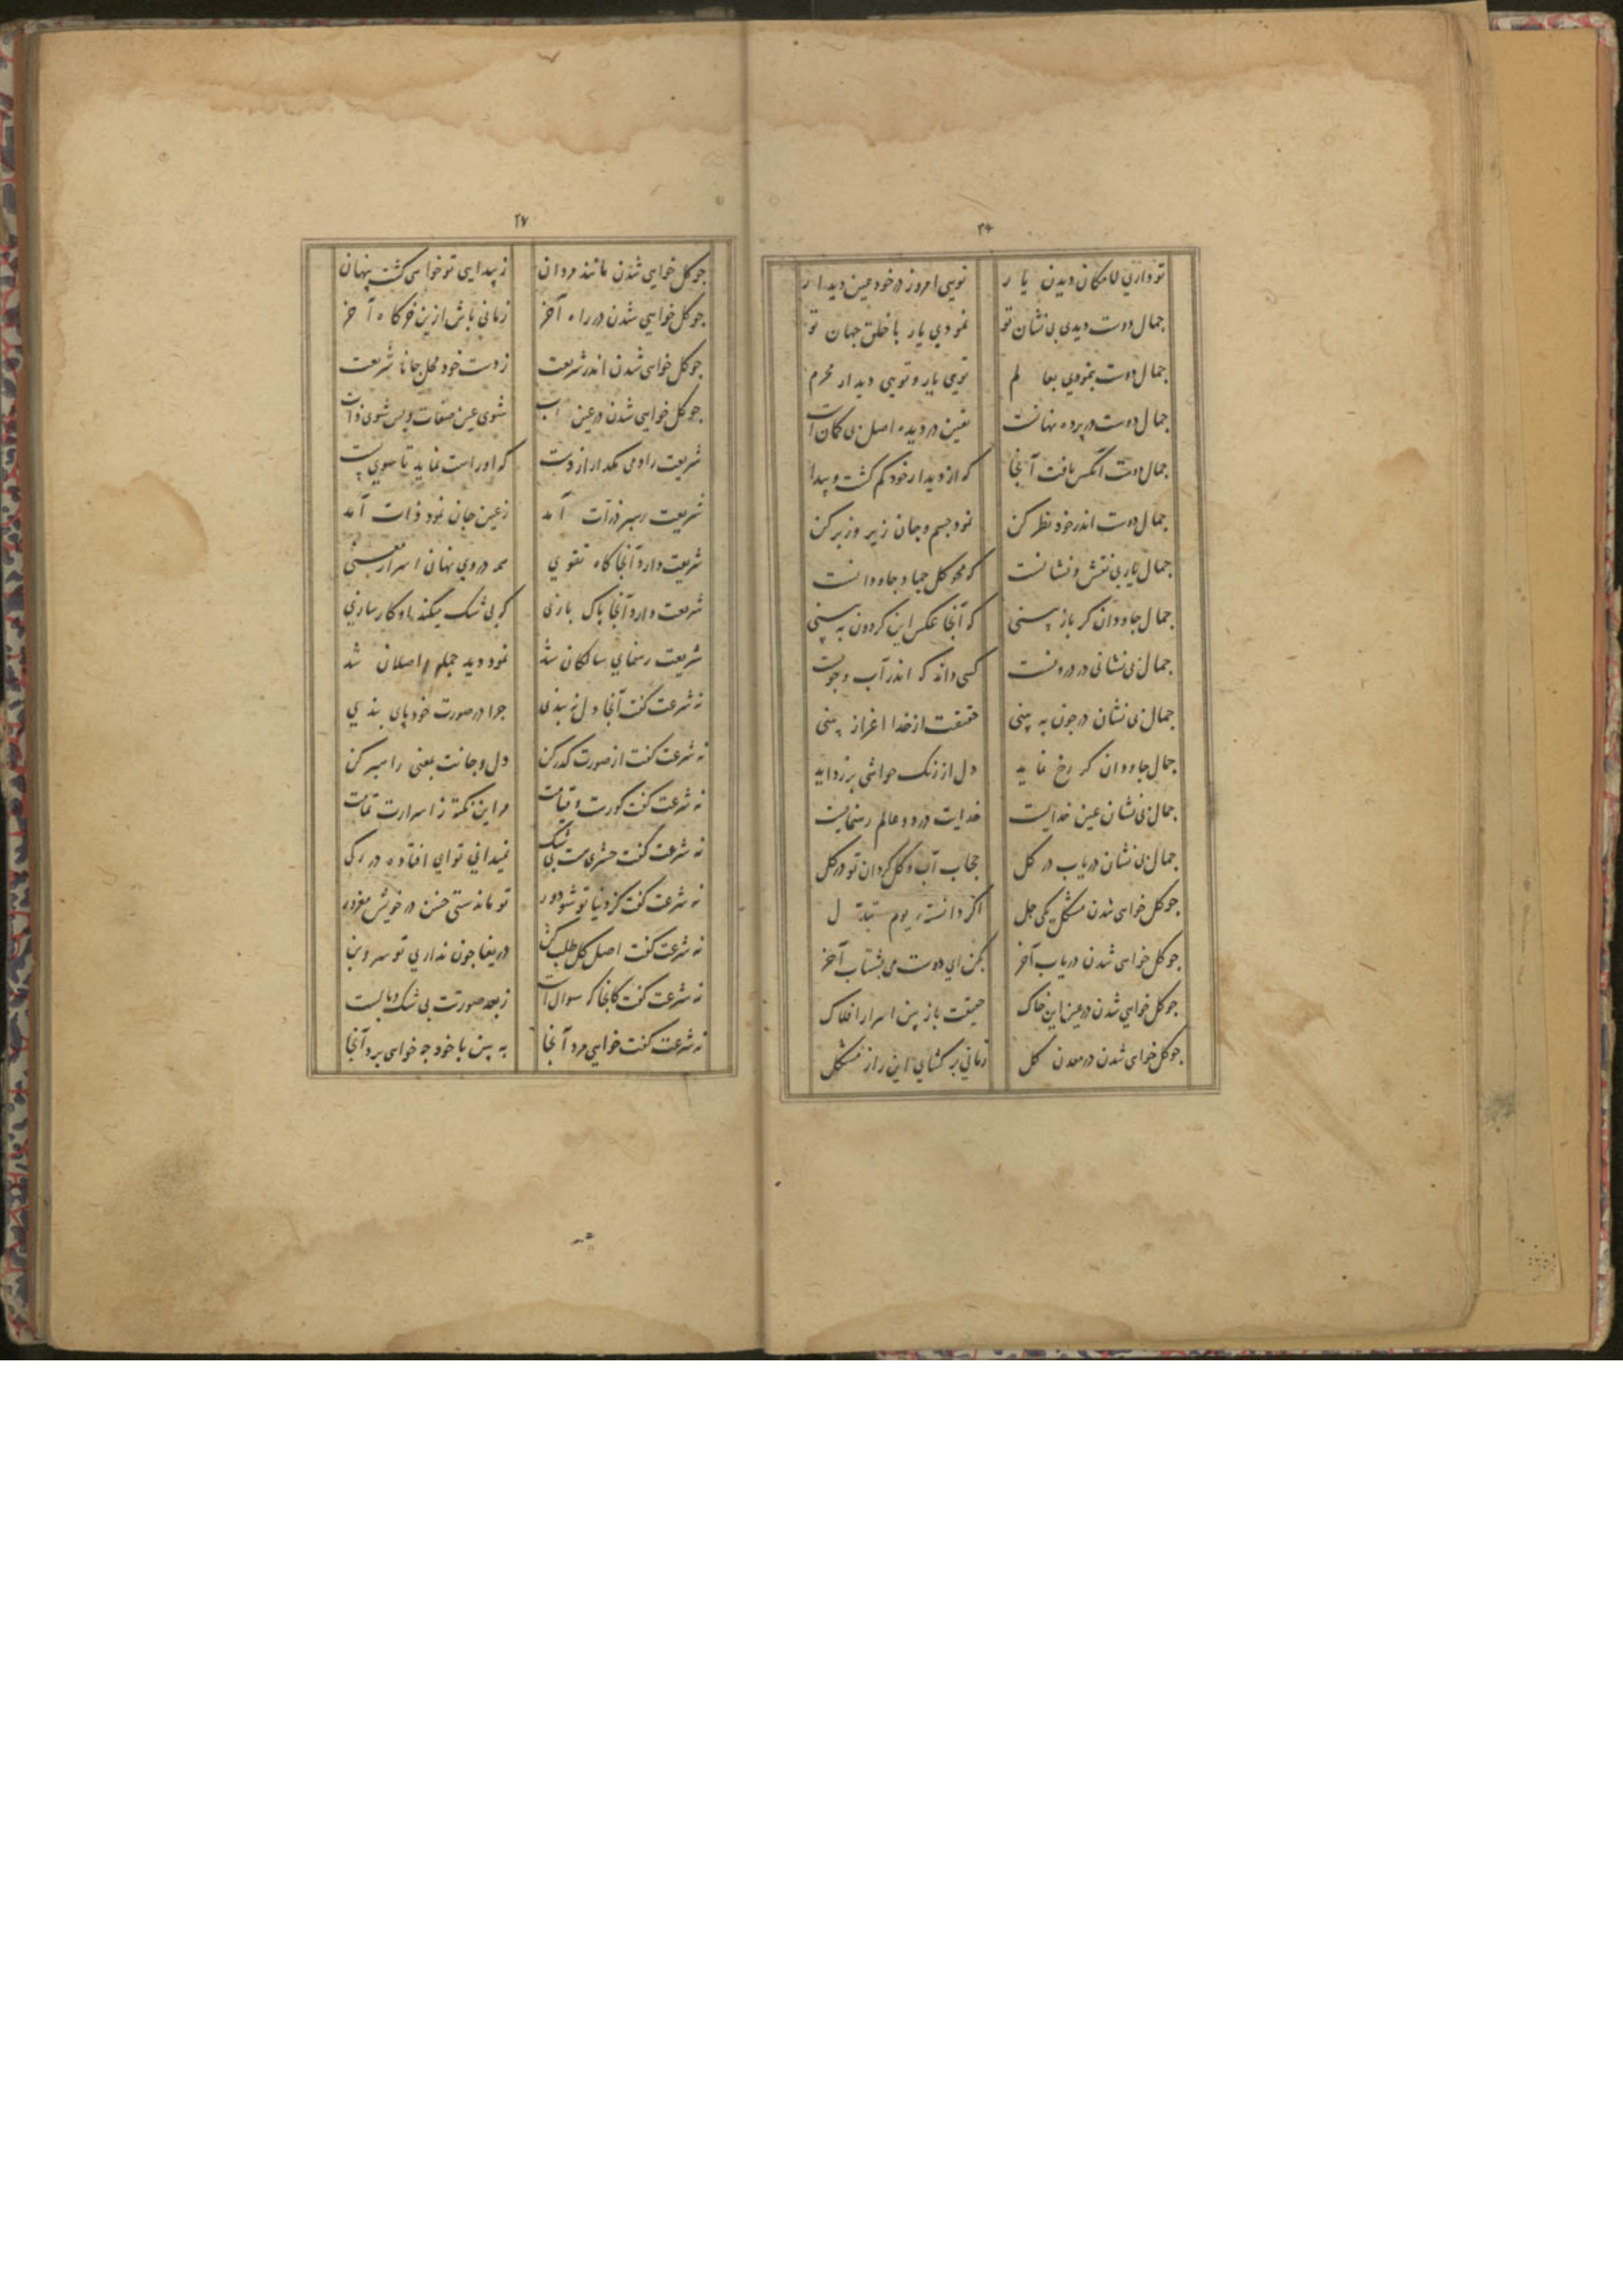 ۲۶
تو داري لامکان ديدن يار تويي امروز در خود عين ديدار
جمال دوست ديدي بي نشان تو نمودي يار با خلق جهان تو
جمال دوست بنمودي بعالم تويي يار و تويي ديدار محرم
جمال دوست در پرده نهانست يقين در ديده اصل بي کمان است
جمال دوست آنکس يافت آنجا که از ديدار خود کم کشت و پيدا
جمال دوست اندر خود نظر کن نمود جسم و جان زير و زبر کن
جمال يار بي نقش و نشانست که محو کل جاودانست
جمال جاودان کر باز بيني که آنجا عکس اين کردون به بيني
جمال بي نشاني در درونست کسي داند که اندر آب و
جمال بي نشان در چون به بيني حقيقت از خدا اعزاز بيني
جمال جاودان کر رخ نمايد دل از زنک حواشي بر زدايد
جمال بي نشان عين خدايست خدايت در دو عالم رهنمايست
جمال بي نشان درياب در کل حجاب آب و کل کردان تو در کل
چو کل خواهي شدن مشکل يکي حل اکر دانسته يوم تبدل
چو کل خواهي شدن درياب آخر بکن اي دوست مي بشتاب آخر
چو کل خواهي شدن در عين اين خاک حقيقت باز بين اسرار افلاک
چو کل خواهي شدن در معدن کل زماني بر کشاي اين راز مشکل
۲۷
چو کل خواهي شدن مانند مردان ز پيدايي تو خواهي کشت پنهان
چو کل خواهي شدن در راه آخر زماني باش ازين خرکاه آخر
چو کل خواهي شدن اندر شريعت ز دست خود مهل جانا شريعت
چو کل خواهي شدن در عين شوي عين صفات و پس شوي ذات
شريعت را و مي مکدار از دست که او راست نمايد تا سوي
شريعت رهبر ذرات آمد ز عين جان نمود ذات آمد
شريعت دارد آنجا کاه تقوي همه در وي نهان اسرار معني
شريعت دارد آنجا پاک بازي که بي شک ميکند او کارسازي
شريعت رهنماي سالکان شد نمود ديد جمله اصلان شد
نه شرعت کفت آنجا دل نه بندي چرا در صورت خود پاي بندي
نه شرعت کفت از صورت کذر کن دل و جانت بمعني راهبر کن
نه شرعت کفت کورت و قيامت مر اين نکته ز اسرارت تمامت
نه شرعت کفت حشري هست بي شک نميداني تو اي افتاده در رک
نه شرعت کفت کز دنيا تو شو دور تو ماندستي چنين در خويش مغرور
نه شرعت کفت اصل کل طلب کن دريغا چون نداري تو سر و بن
نه شرعت کفت کانجا که سوال است ز بعد صورتت بي شک وبالست
نه شرعت کفت خواهي مرد آنجا به بين با خود چه خواهي برد آنجا